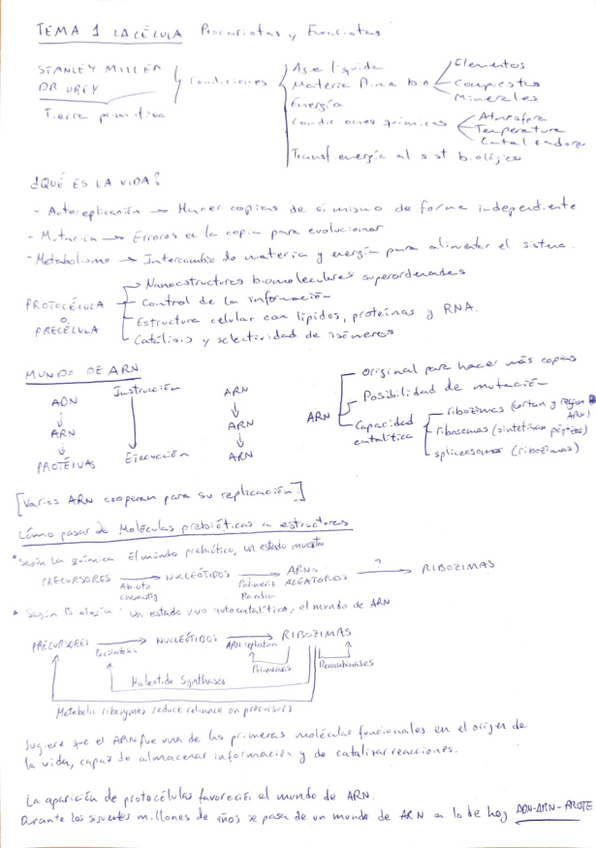 TEMA 1 LA CÉLULA Procariotas y Eucariotas
STANLEY MILLER
DR UREY
Tierra primitiva
Condiciones
Agua líquida
Materia Prima bio
Elementos
Compuestos
Minerales
Energía
Condiciones químicas
Atmósfera
Temperatura
Catalizadores
Transf energía al sist biológico
¿QUÉ ES LA VIDA?
- Autoreplicación → Hacer copias de si mismo de forma independiente
- Mutación → Errores en la copia para evolucionar
- Metabolismo → Intercambio de materia y energía para alimentar el sistema.
PROTOCÉLULA
o
PRECÉLULA
Nanoestructures biomoleculares superordenadas
Control de la información
Estructura celular con lípidos, proteínas y RNA.
Catálisis y selectividad de isómeros
MUNDO DE ARN
ADN
ARN
PROTEÍNAS
Instrucción
Ejecución
ARN
ARN
ARN
ARN
Original para hacer más copias
Posibilidad de mutación
Capacidad catalítica
ribozimas (cortan y ARN)
ribosomas (sintetizan péptidos)
spliceosomas (ribozimas)
[Varios ARN cooperan para su replicación.]
Cómo pasar de Moléculas prebióticas a estructuras
* Según la química El mundo prebiótico, un estado muerto
PRECURSORES → NUCLEÓTIDOS → ARNs ALEATORIOS → ? RIBOZIMAS
Abiotic chemistry
Polimeris Random
* Según Biología Un estado vivo autocatalítico, el mundo de ARN
PRECURSORES → NUCLEÓTIDOS → RIBOZIMAS
Biosíntesis
ARN replication
Polimerasas
Recombinases
Nucleotide Synthases
Metabolic ribozymes reduce reliance on precursors
Sugiere que el ARN fue una de las primeras molécular funcionales en el origen de
la vida, capaz de almacenar información y de catalizar reacciones.
La aparición de protocélulas favoreció el mundo de ARN.
Durante los siguientes millones de años se pasa de un mundo de ARN a lo de hoy ADN-ARN-PROTE